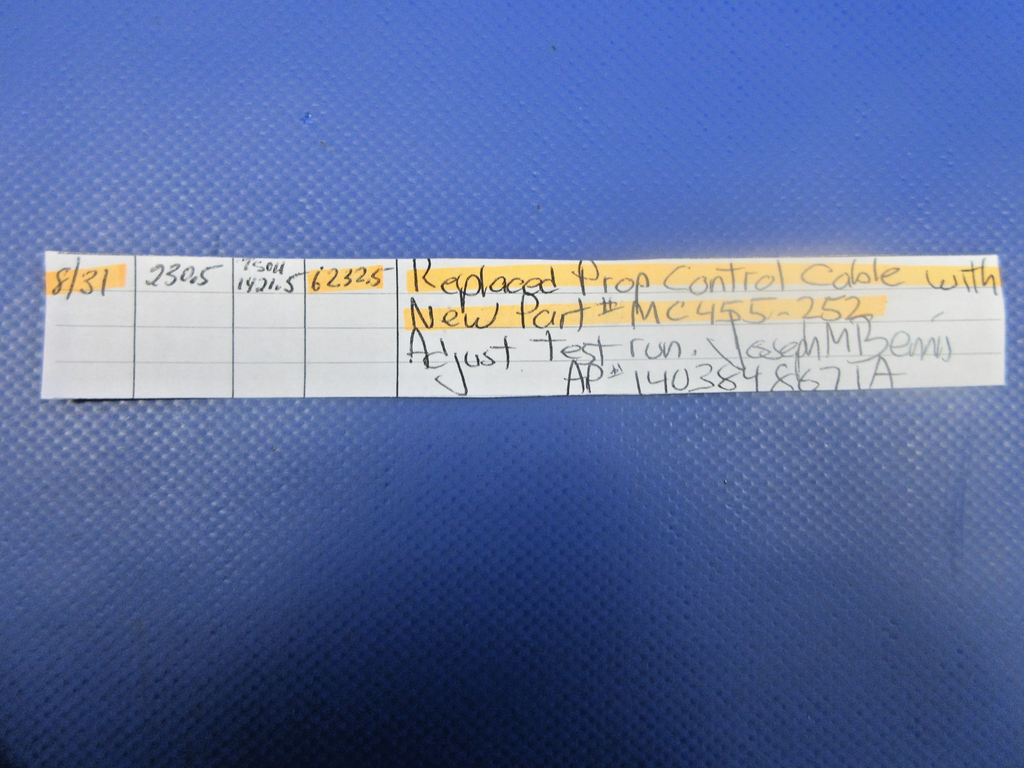 8/31 2305 TSOH 1421.5 6232.5 Replaced Prop Control Cable with
New Part # MC455-252
Adjust Test run. Joseph M Bemis
AP# 140384867IA